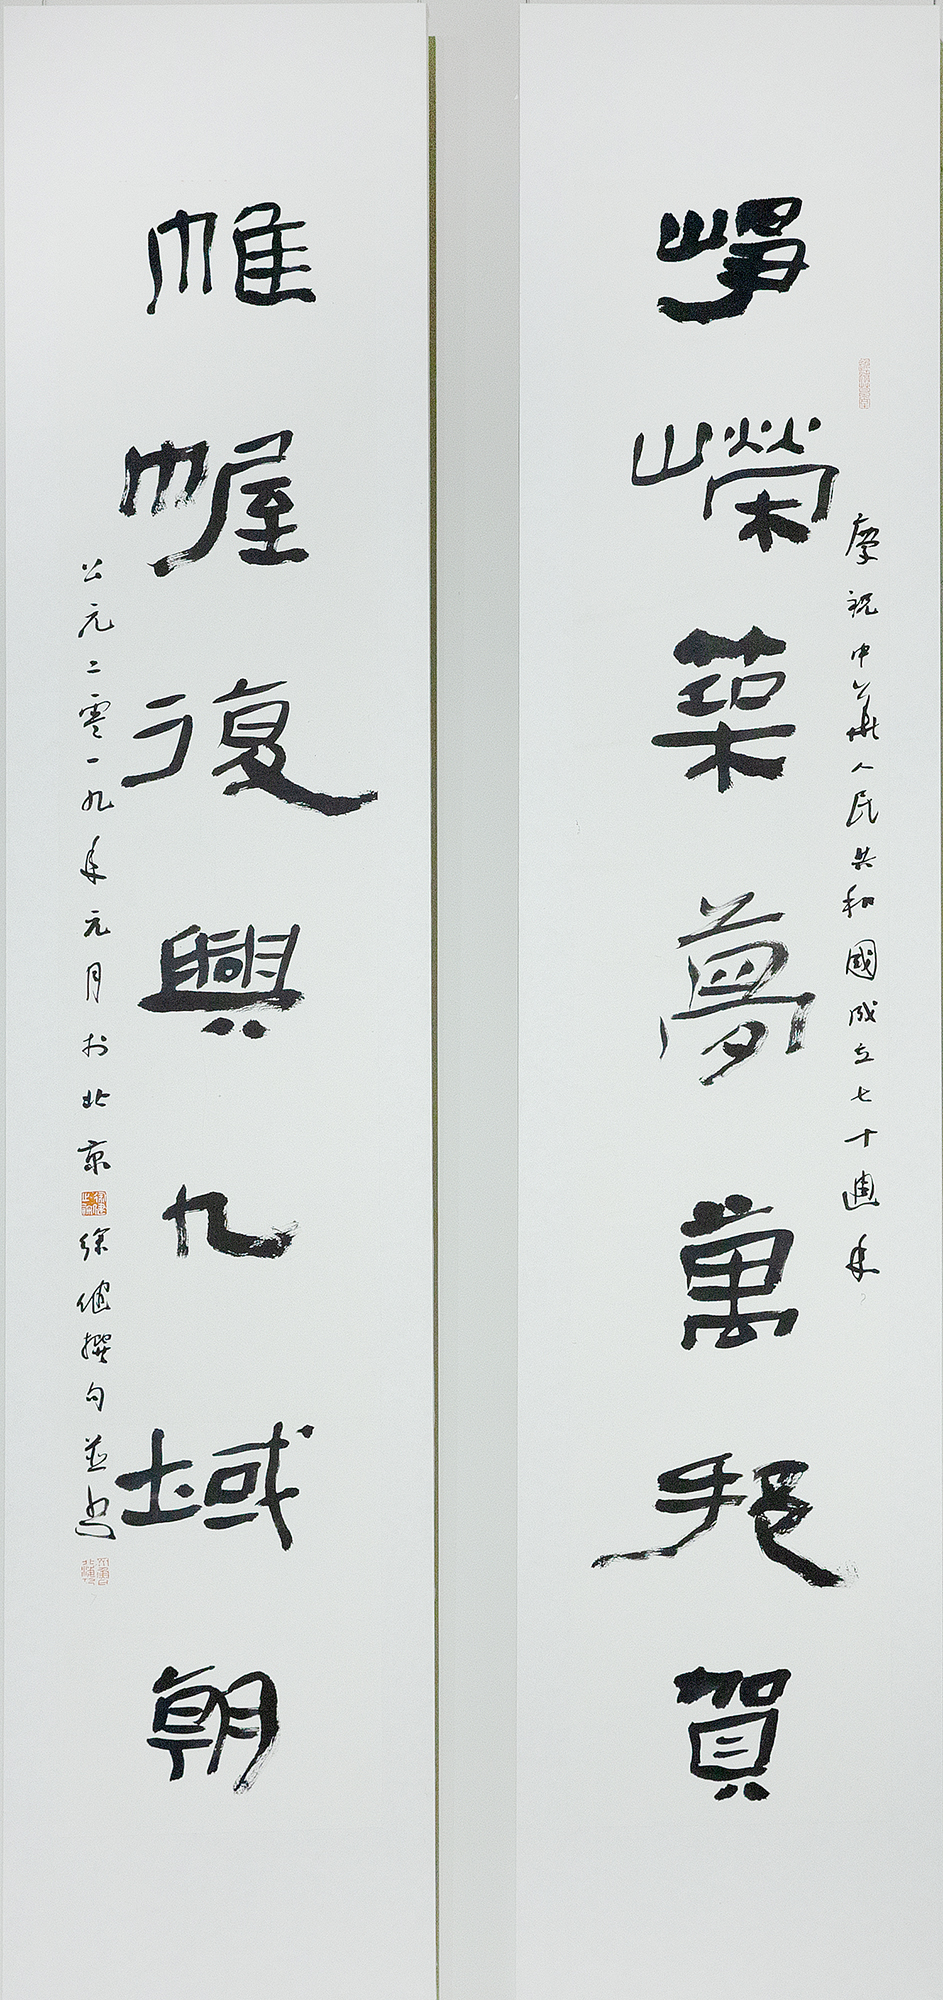 慶祝中華人民共和國成立七十週年
崢嶸築夢萬邦賀
帷幄復興九域朝
公元二零一九年元月於北京徐健撰句並書